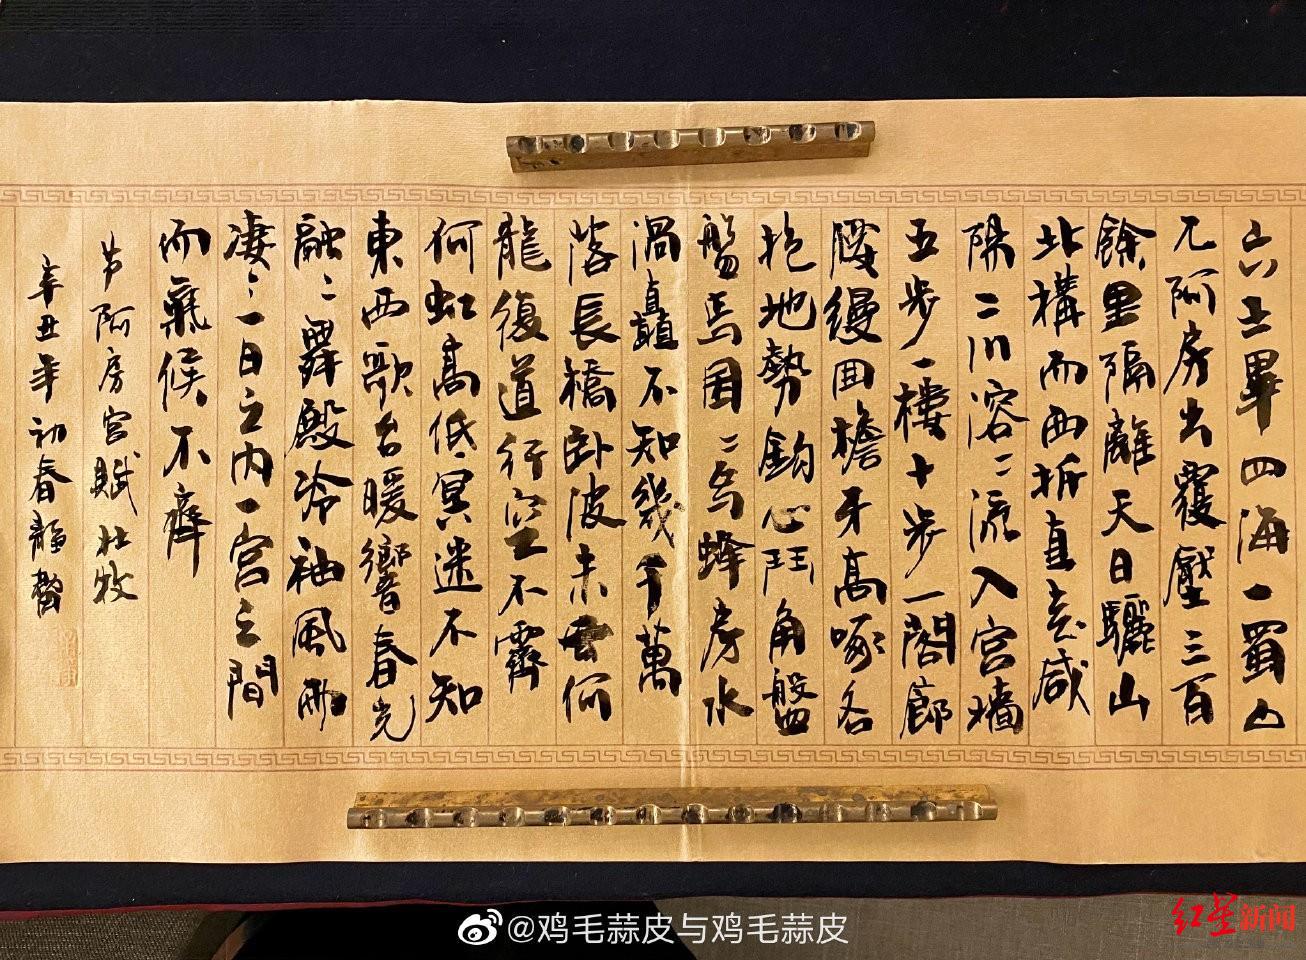 六王畢四海一蜀山
兀阿房出覆壓三百
餘里隔離天日驪山
北構而西折直走咸
陽二川溶〻流入宫墙
五步一樓十步一閣廊
腰縵回檐牙高啄各
抱地勢鉤心鬥角盤
盤焉囷〻焉蜂房水
渦矗不知幾千萬
落長橋卧波未雲何
龍復道行空不霽
何虹高低冥迷不知
東西歌台暖響春光
融〻舞殿冷袖風雨
凄〻一日之内一宫之間
而氣候不齊
节阿房宫賦杜牧
辛丑年初春靜
@鸡毛蒜皮与鸡毛蒜皮
红星新闻